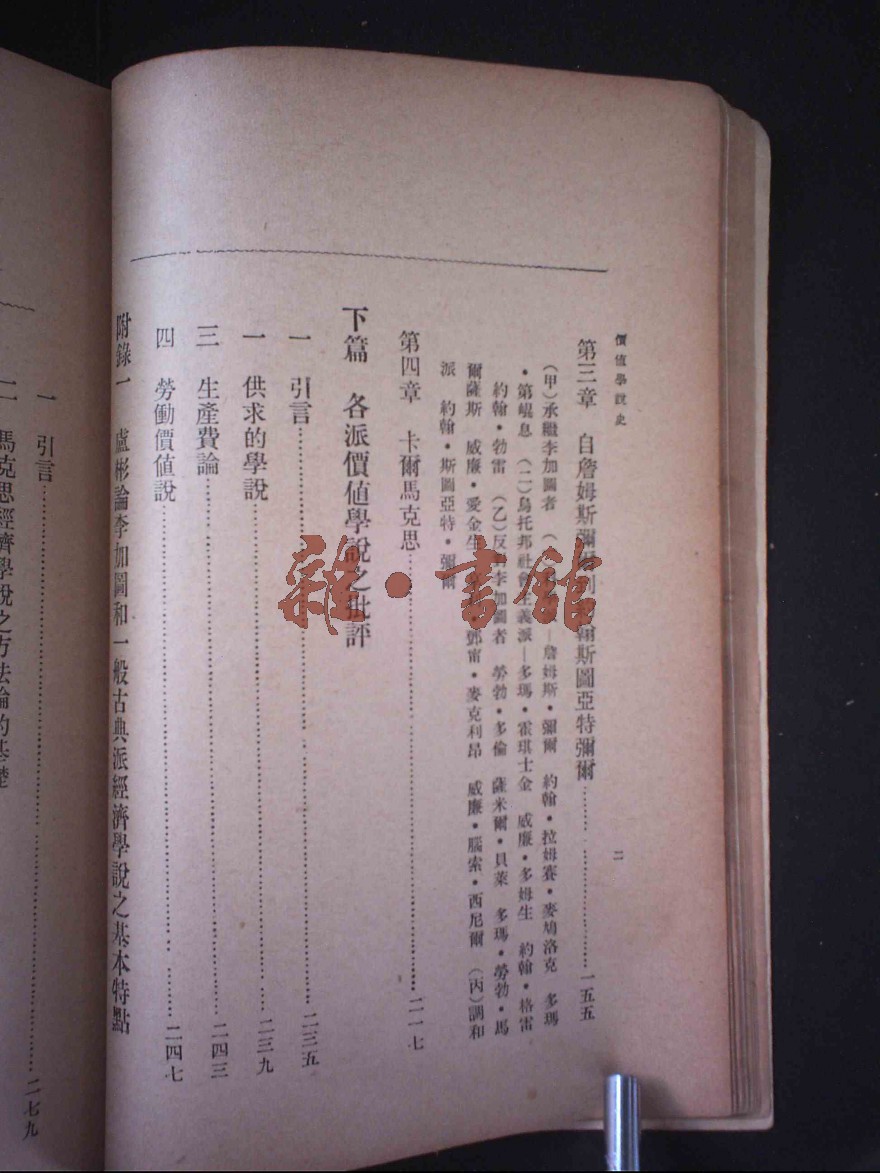 價值學說史
二
第三章 自詹姆斯彌爾到約翰斯圖亞特彌爾……一五五
(甲)承繼李加圖者 —詹姆斯•彌爾 約翰•拉姆賽•麥鳩洛克 多瑪
•第崐息 (二)烏托邦社會主義派—多瑪•霍琪士金 威廉•多姆生 約翰•格雷
約翰•勃雷 (乙)反對李加圖者 勞勃•多倫 薩米爾•貝萊 多瑪•勞勃•馬
爾薩斯 威廉•愛金生 鄧甯•麥克利昂 威廉•腦索•西尼爾 (丙)調和
派 約翰•斯圖亞特•彌爾
第四章 卡爾馬克思……二一七
下篇 各派價值學說之批評
一 引言……二三五
一 供求的學說……二三九
三 生產費論……二四三
四 勞働價值說……二四七
附錄一 盧彬論李加圖和一般古典派經濟學說之基本特點
一 引言……二七九
二 馬克思經濟學說之方法論的基礎
雜•書館